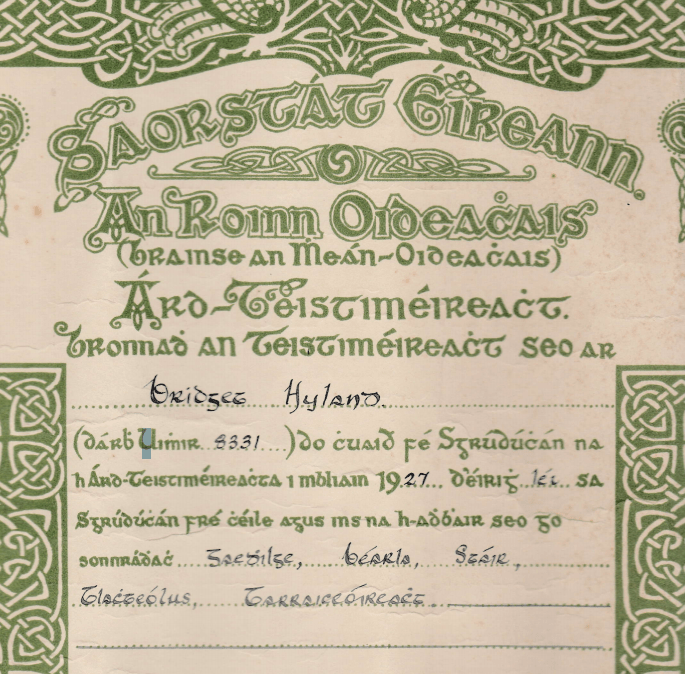 Saorstát Éireann.
An Roinn Oideaċais
(Brainse an Ṁeán-Oideaċais)
Árd-Teistiméireaċt.
Bronnaḋ an Teistiméireaċt seo ar
Bridget Hyland.
(dárḃ Uiṁir 8331) do ċuaiḋ fé Sgrúdúċán na
hÁrd-Teistiméireaċta i mbliain 1927 d'éiriġ léi sa
Sgrúdúċán fré ċéile agus ins na h-aḋḃair seo go
sonnráḋaċ Gaeḋilge, Béarla, Stáir,
Tlaċteólus, Tarraiceóireaċt